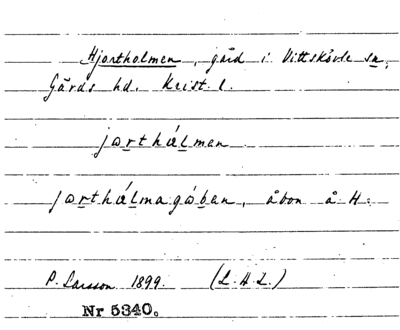 Hjortholmen, gård i Vittskövle sn,
Gärds hd. Krist. l.
jorthálmen
jorthálmagóban, åbon å H.
P. Larsson 1899. (L.H.L.)
Nr 5340.